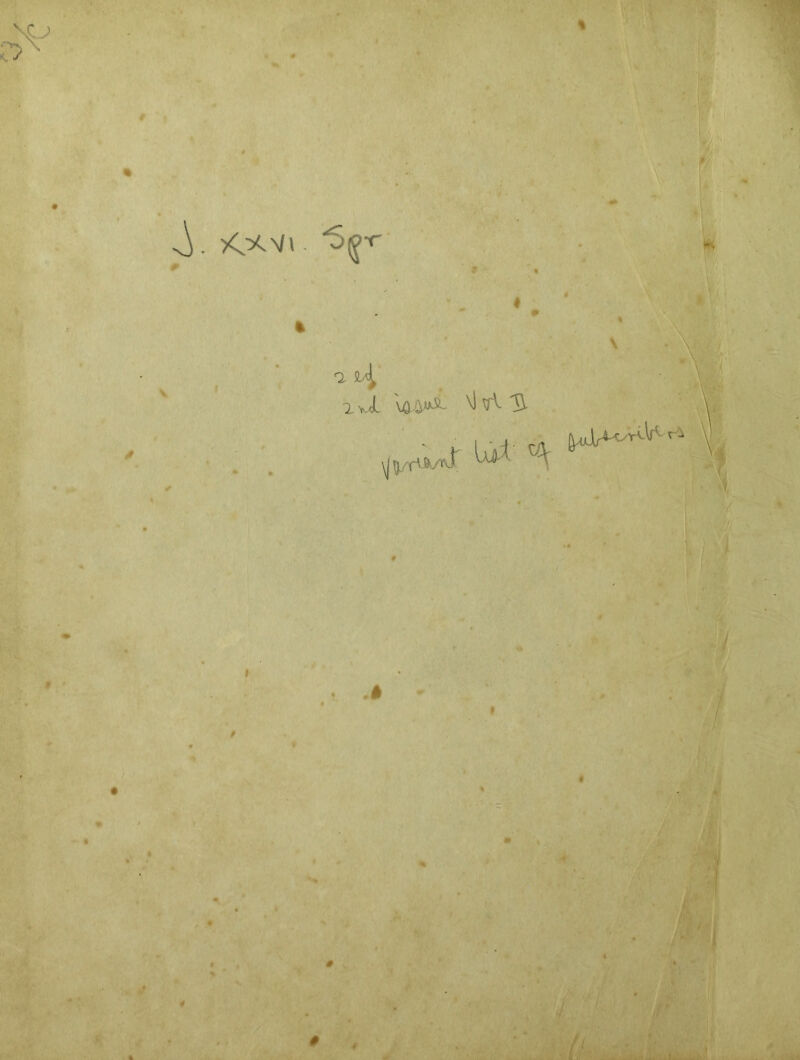 J. XXVI. Spr
2 ed
2nd issue Vol II
Variant list of subscribers